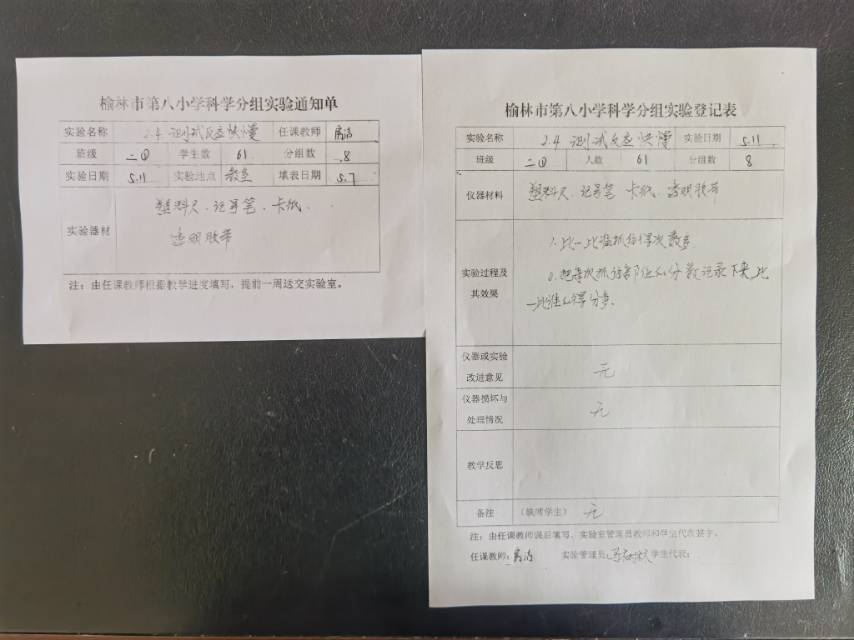 榆林市第八小学科学分组实验通知单
实验名称 2.4 测试反应快慢 任课教师
班级 二① 学生数 61 分组数 8
实验日期 5.11 实验地点 教室 填表日期 5.7
实验器材 塑料尺、记号笔、卡纸、
透明胶带
注：由任课教师根据教学进度填写，提前一周送交实验室。
榆林市第八小学科学分组实验登记表
实验名称 2.4 测试反应快慢 实验日期 5.11
班级 二① 人数 61 分组数 8
仪器材料 塑料尺、记号笔、卡纸、透明胶带
实验过程及
其效果
1.比一比谁抓住得次数多
2.把每次抓住部位的分数记录下来,比
一比谁的得分多.
仪器或实验
改进意见
无
仪器损坏与
处理情况
无
教学反思
备注 （缺席学生） 无
注：由任课教师课后填写，实验室管理员教师和学生代表签字。
任课教师: 实验管理员: 学生代表: